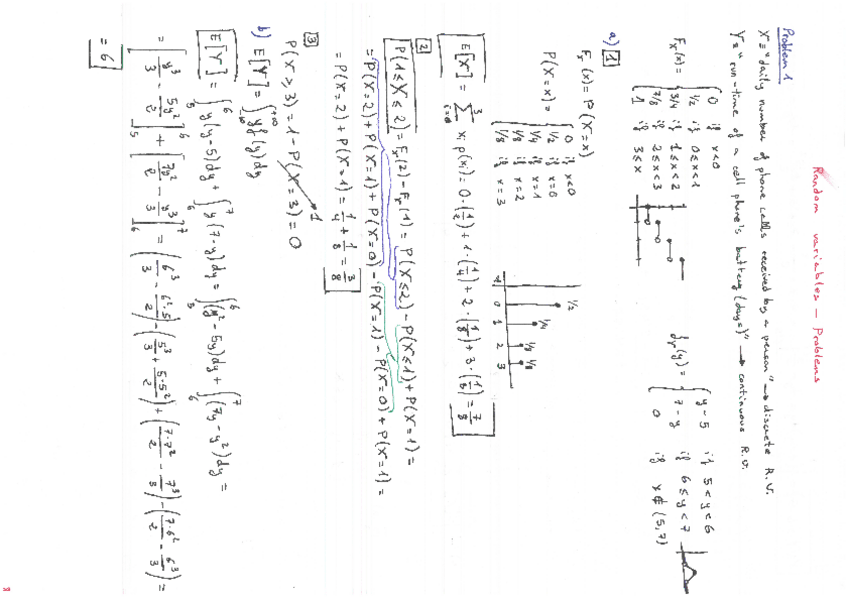 Random variables – Problems
Problem 1
X = "daily number of phone calls received by a person" → discrete R.V.
Y = "run-time of a cell phone's battery (days)" → continuous R.V.
F_X(x) = { 0 if x<0
1/2 if 0≤x<1
3/4 if 1≤x<2
7/8 if 2≤x<3
1 if 3≤x
f_Y(y) = { y-5 if 5<y<6
7-y if 6≤y<7
0 if x∉(5,7)
a) 1
F_X(x) = P(X=x)
P(X=x) = { 0 if x<0
1/2 if x=0
1/4 if x=1
1/8 if x=2
1/8 if x=3
0 1 2 3
1/2 1/4 1/8 1/8
E[X] = Σ x_i p(x) = 0·(1/2) + 1·(1/4) + 2·(1/8) + 3·(1/8) = 7/8
2
P(1≤X≤2) = F_X(2) - F_X(1) = P(X≤2) - P(X≤1) + P(X=1) =
= P(X=2) + P(X=1) + P(X=0) - P(X=1) - P(X=0) + P(X=1) =
= P(X=2) + P(X=1) = 1/4 + 1/8 = 3/8
3
P(X≥3) = 1 - P(X=3) = 0
1
b) E[Y] = ∫_{-∞}^{+∞} y f(y) dy
E[Y] = ∫_5^6 y(y-5)dy + ∫_6^7 y(7-y)dy = ∫_5^6 (y²-5y)dy + ∫_6^7 (7y-y²)dy =
= [y³/3 - 5y²/2]_5^6 + [7y²/2 - y³/3]_6^7 = (6³/3 - 6²·5/2) - (5³/3 + 5·5²/2) + (7·7²/2 - 7³/3) - (7·6²/2 - 6³/3) =
= 6